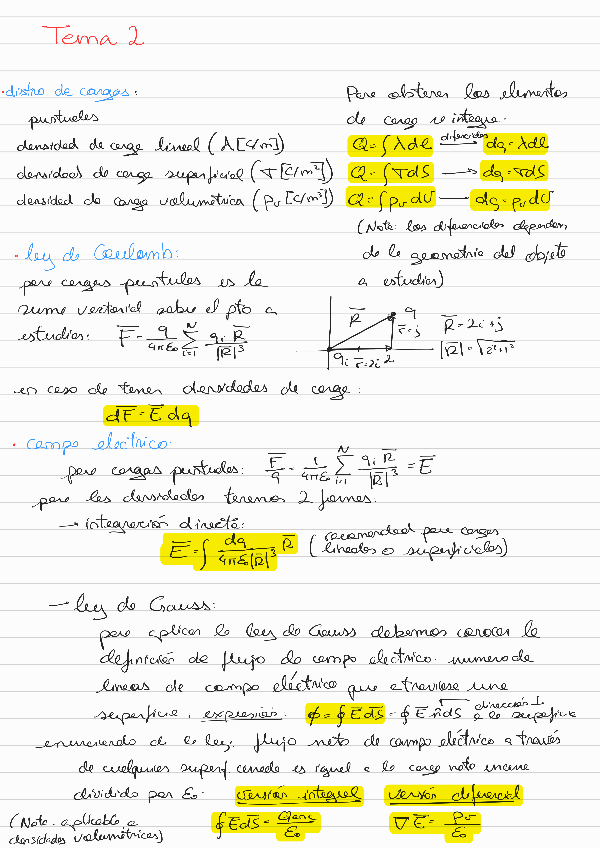 Tema 2
· distro de cargas:
puntuales
densidad de carga lineal (λ[C/m])
densidad de carga superficial (σ[C/m²])
densidad de carga volumétrica (ρv[C/m³])
Para obtener los elementos
de carga se integra.
Q = ∫λdl diferencias → dq = λdl
Q = ∫σdS → dq = σdS
Q = ∫ρv dV → dq = ρv dV
(Nota: los diferenciales dependen
de la geometria del objeto
a estudiar)
· ley de Coulomb:
para cargas puntuales es la
suma vectorial sobre el pto a
estudiar: F̅ = q/4πε₀ Σᵢ₌₁ᴺ qᵢ R̅/|R̅|³
R̅ q r̅=j qᵢ r̅=2i 2
R̅ = 2i+j
|R̅| = √2²+1²
en caso de tener densidades de carga:
dF̅ = E̅ dq
· campo electrico:
para cargas puntuales: F̅/q = 1/4πε₀ Σᵢ₌₁ᴺ qᵢ R̅/|R̅|³ = E̅
para las densidades tenemos 2 formas:
→ integración directa:
E̅ = ∫ dq/4πε₀|R̅|³ R̅ (recomendad para cargas
lineales o superficiales)
→ ley de Gauss:
para aplicar la ley de Gauss debemos conocer la
definición de flujo de campo electrico. numero de
lineas de campo eléctrico que atraviese una
superficie, expresión. ϕ = ∮E̅dS̅ = ∮E̅ n̅dS dirección ⊥ a la superficie
enunciando a la ley: flujo neto de campo eléctrico a través
de cualquier superf. cerrada es igual a la carga neta encerra
dividido por ε₀. versión integral versión diferencial
(Nota: aplicable a
densidades volumétricas)
∮E̅dS̅ = Qenc/ε₀ ∇E̅ = ρv/ε₀